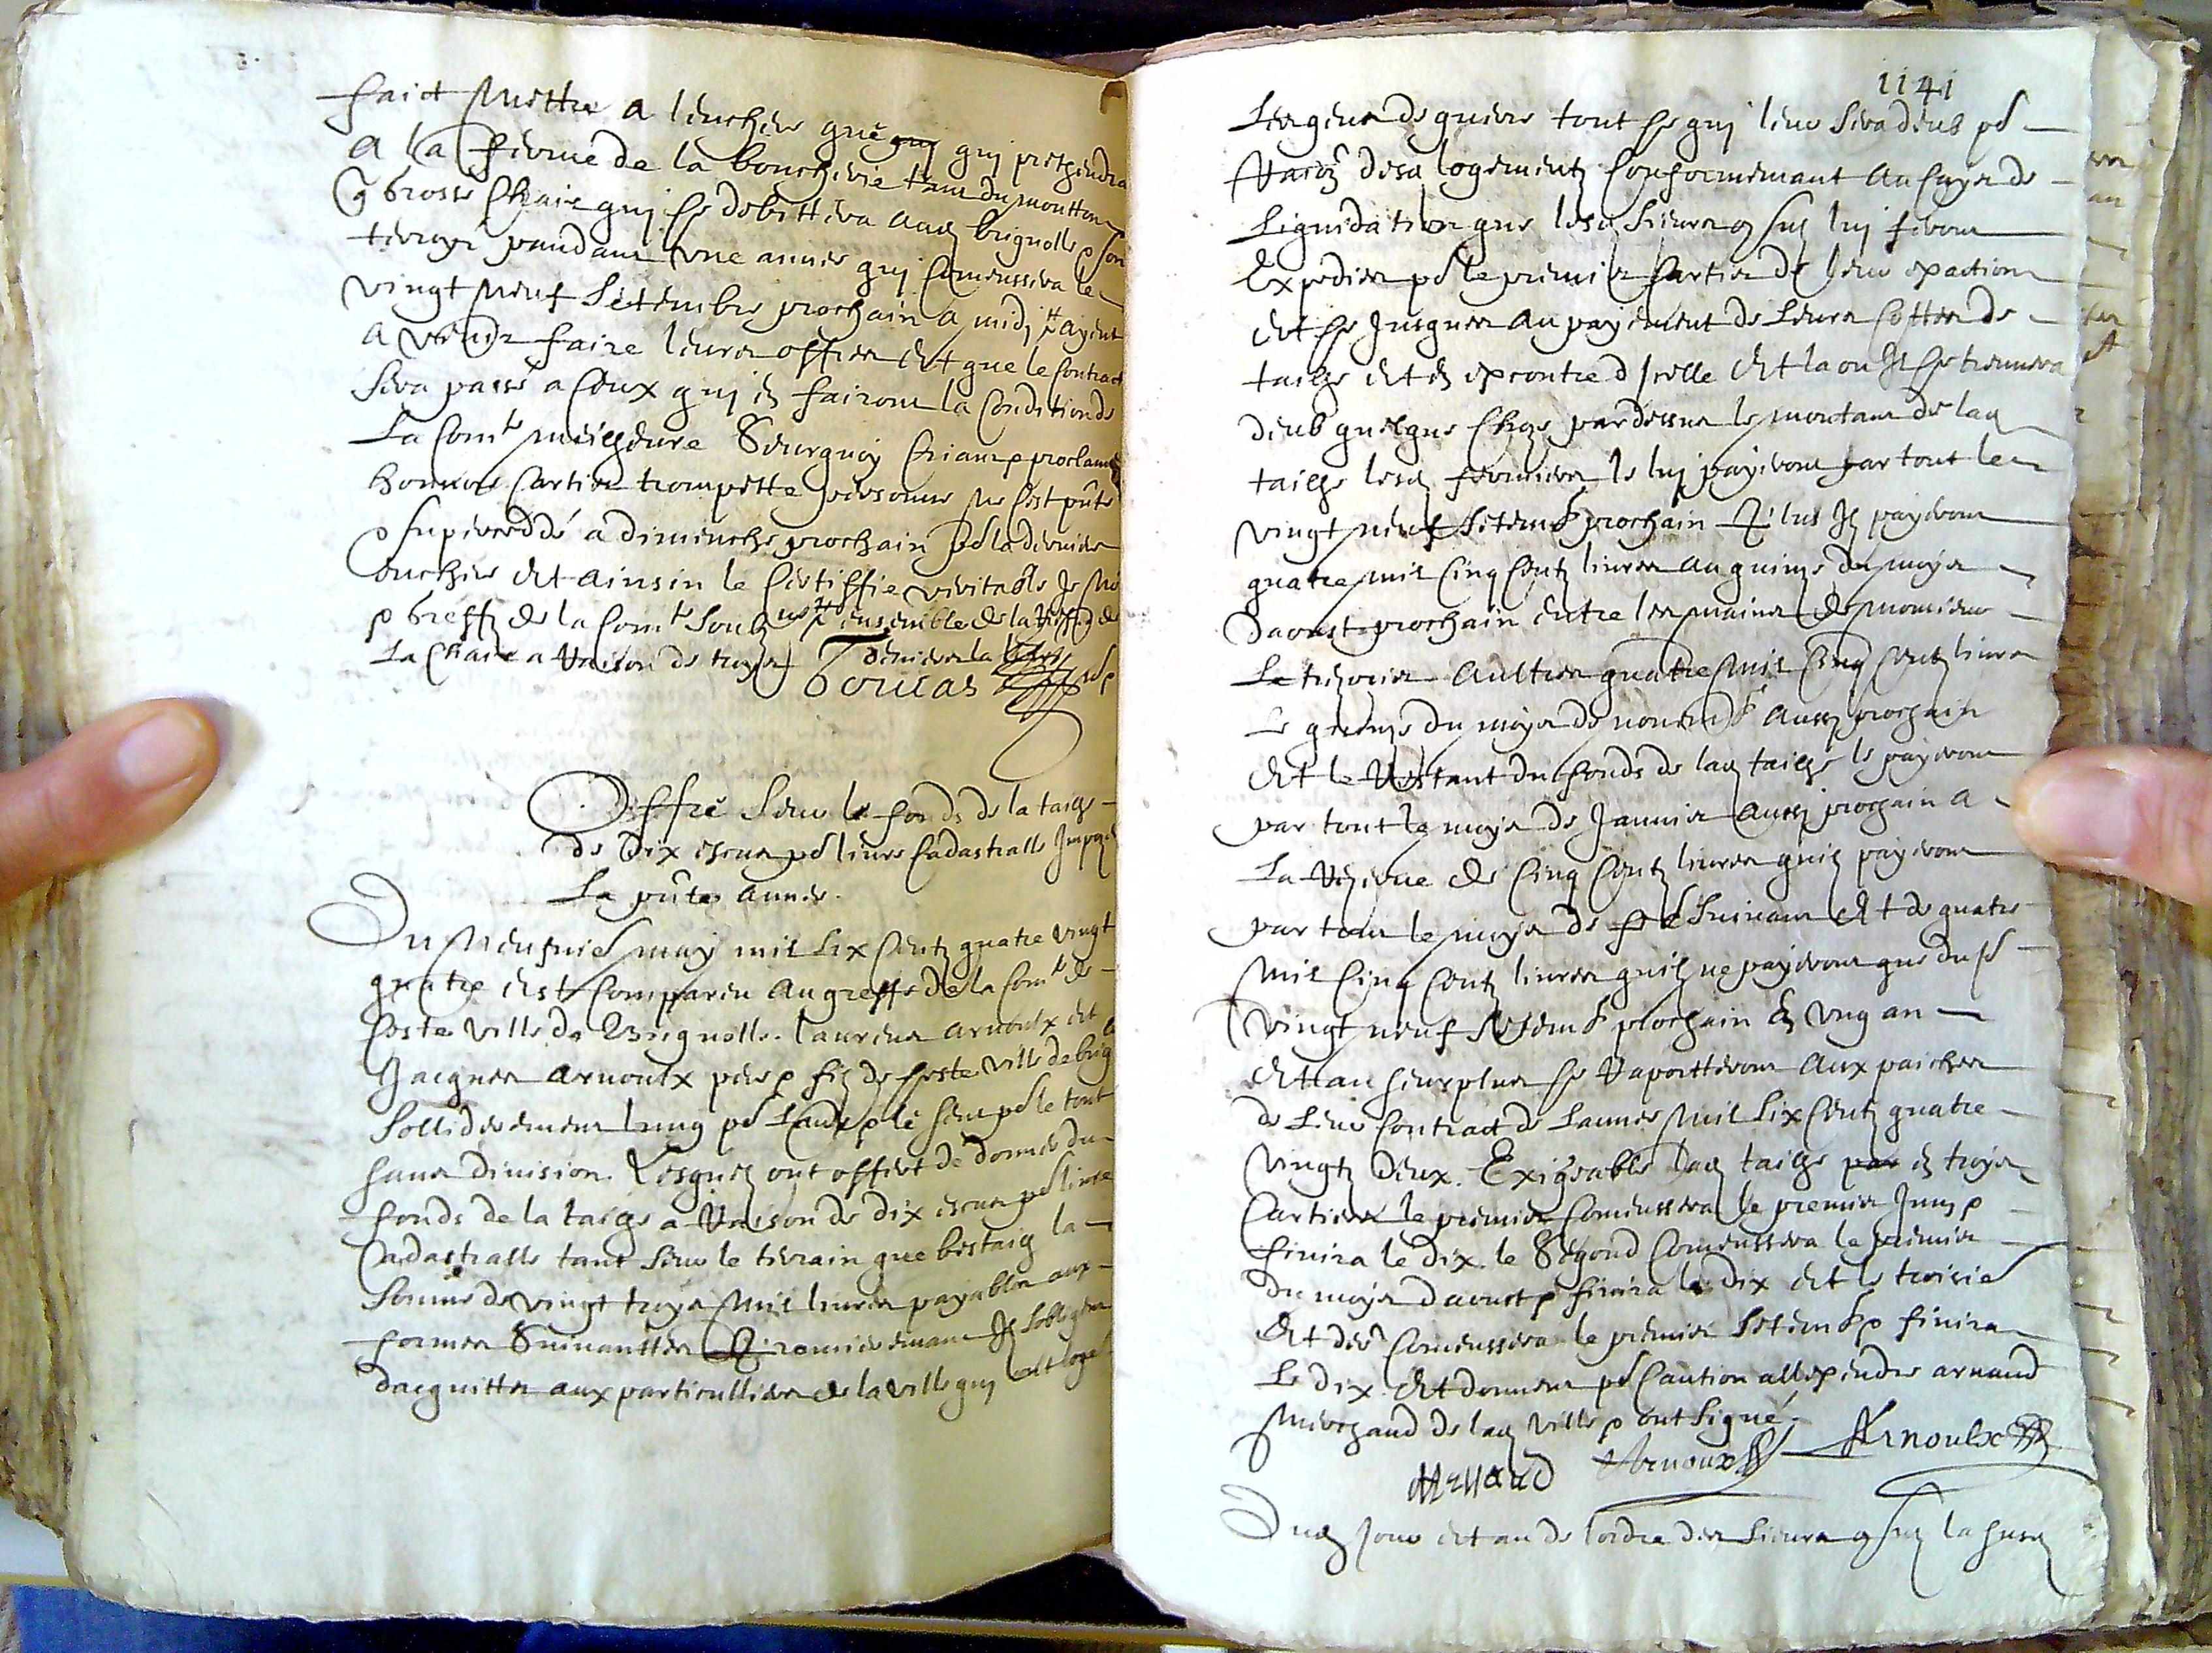 faict mettre a lenchere que qui pretzendra
a la ferme de la boucherie tant du moutton
grosse chair qui se debittera aud brignolle & son
terroyr pandant une année qui comenssera le
vingt neuf setembre prochain a midj ayent
a venir faire leurs offres et que le contract
sera passé a ceux quj en fairont la condition de
la comté meilheure Seurquoy criant & proclamé
honnore Cartier trompette personne ne sest pnte
& suprcedé a dimenche prochain pr la derniere
enchere et ainsin le certiffie veritable Je
& greff de la comté soubz ensemble de la
la chair a raison de troys deniers la livre
Toucas
Offre seur le fonds de la tailhe
de dix escus pr livre cadastralle Imposé
La pnte année.
Du neufvie may mil six centz quatre vingt
quatre est comparu au greffe de la comté de
ceste ville de Brignolle. laurens arnoulx et
Jacques arnoulx pere & filz de ceste ville de brig
sollideremene lung pr laude & le seul pr le tout
sans division. Lesquelz ont offert de donner du
fonds de la tailhe a raison de dix escus pr livre
cadastralle tant seur le terrain que bestailh la
somme de vingt troys mil livres payables aux
formes suivanttes premieremant Jl sobligent
dacquitter aux particulliers de la ville quj ont logé
1141
les gens de guerre tout ce quj leur sera deub pr
raon desd logementz conformemant au cayer de
liquidation que lesd sieurs consulz luj feront
expedier pr le premier cartier de leur exaction
et ce jusques au payement de leurs cottes de
tailhe et en excontre d jcelle et la ou Jl se trouvera
deub quelque choze pardessus le montant de lad
tailhe lesd fermiers le luj payeront par tout le
vingt neuf setembr prochain plus Jl payeront
quatre mil cinq centz livres au quinze du moys
daoust prochain entre les mains de monsieur
Le trezorier aultres quatre mil cinq centz livres
Le quinze du moys de novembr aussy prochain
et le restant du fonds de lad tailhe le payeront
par tout le moys de Janvier aussj prochain a
La rezerve de cinq centz livres quilz payeront
par tout le moys de fe suivant et de quatre
mil cinq centz livres quilz ne payeront que du
vingt neuf setembr prochain en ung an
et au seurplus se raportteront aux paiches
de leur contract de lannée mil six centz quatre
vingtz deux. Exigeable lad tailhe par en troys
cartiers le premier comenssera le premier Jung &
finira le dix. le segond comenssera le premier
du moys daoust & finira le dix et le troisie
et der comenssera le premier setembr & finira
Le dix. et donnent pr caution allexendre arnaud
merchand de lad ville & ont signé.
Arnaud Arnoux Arnoulx
Dud jour et an de lordre des sieurs consulz la susd